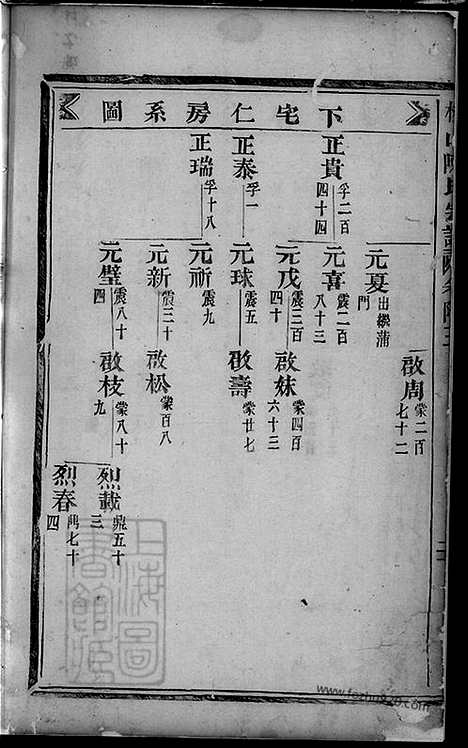 下宅仁房系圖
正貴 孚二百四十四
正泰 孚一
正瑞 孚十八
元夏 出繼蒲門
元喜 震二百八十三
元戊 震三百十四
元球 震五
元祈 震九
元新 震三十
元璧 震八十四
啟周 蒙二百七十二
啟妹 蒙四百六十三
啟壽 蒙廿七
啟松 蒙百八
啟枝 蒙八十九
烈載 鼎五十三
烈春 鼎七十四
上海圖書館藏